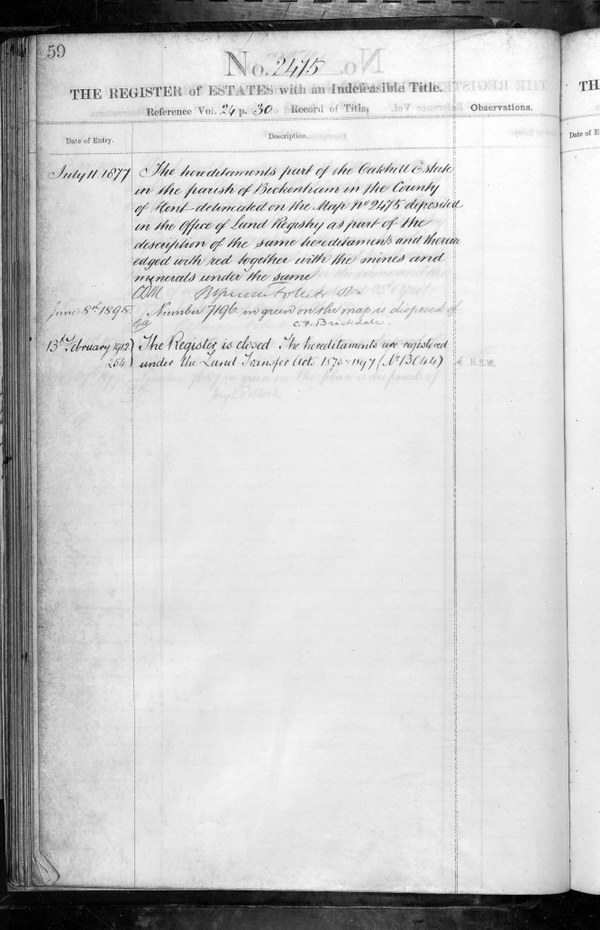 59
No. 2475
THE REGISTER of ESTATES with an Indefeasible Title.
Reference Vol. 24 p. 30 Record of Title,
Observations.
Date of Entry.
Description.
July 11 1877
The hereditaments part of the Oakhill Estate
in the parish of Beckenham in the County
of Kent delineated on the Map No 2475 deposited
in the Office of Land Registry as part of the
description of the same hereditaments and thereon
edged with red together with the mines and
minerals under the same
June 8th 1895
Number 7196 in green on the map is disposed of
C.F. Brickdale.
13th February 1912
254
The Register is closed The hereditaments are registered
under the Land Transfer Acts 1875 & 1897 (No 13044)
TH
Date of E